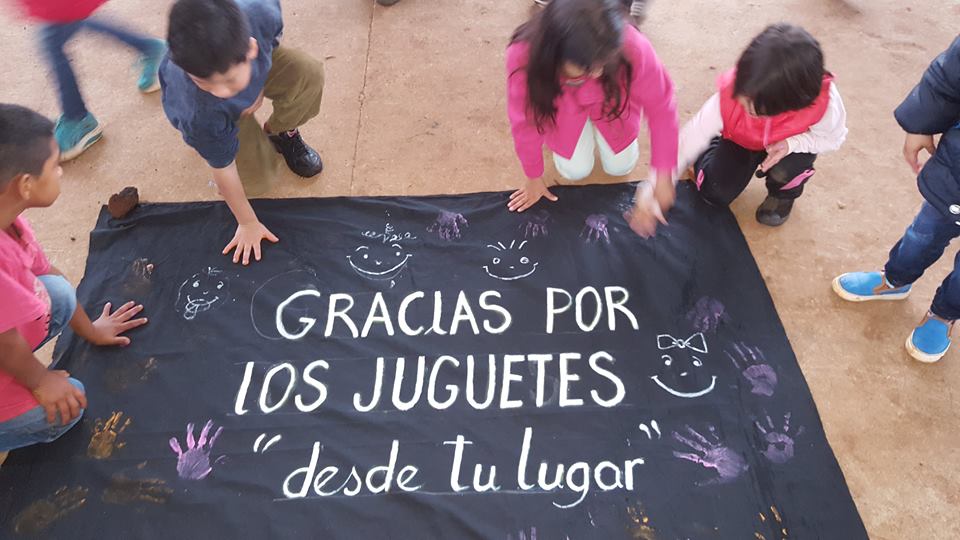 GRACIAS POR
LOS JUGUETES
"desde tu lugar"